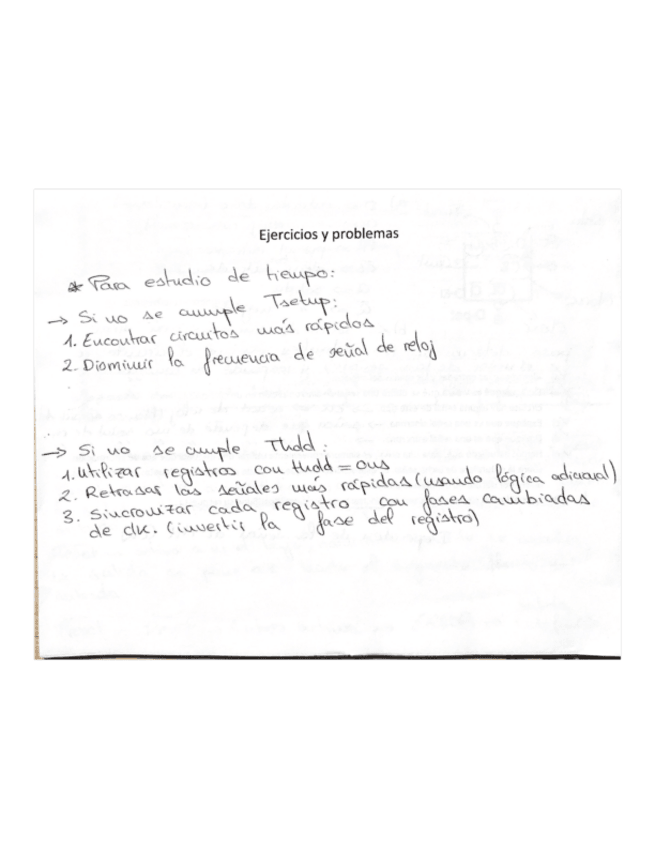 Ejercicios y problemas
* Para estudio de tiempo:
→ Si no se cumple Tsetup:
1. Encontrar circuitos más rápidos
2. Disminuir la frecuencia de señal de reloj
→ Si no se cumple Thold:
1. Utilizar registros con thold = 0ns
2. Retrasar las señales más rápidas (usando lógica adicional)
3. Sincronizar cada registro con fases cambiadas
de clk. (invertir la fase del registro)